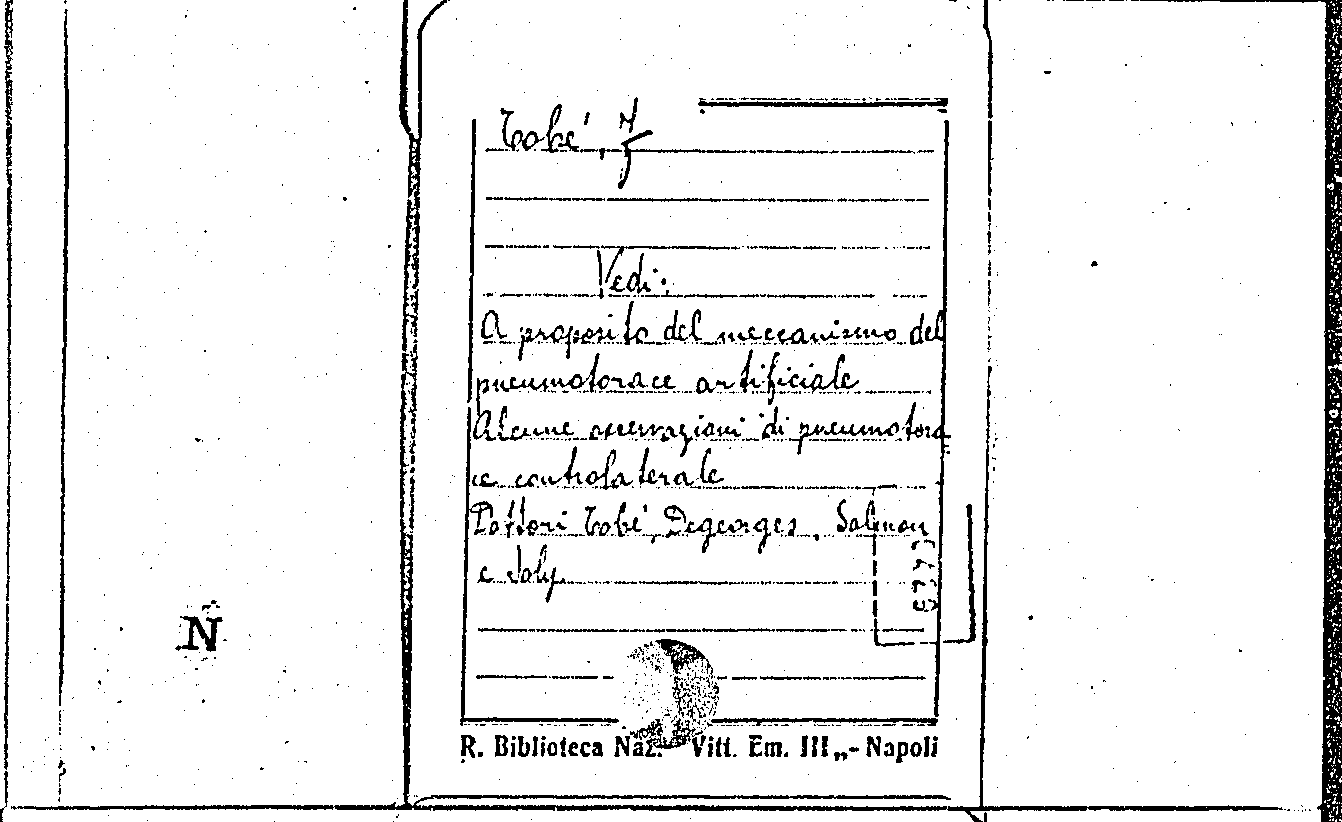 Tobé, F
Vedi:
A proposito del meccanismo del
pneumotorace artificiale
Alcune osservazioni di pneumotora
ce controlaterale
Dottori Tobé, Degeorges, Salmon
e Joly
R. Biblioteca Naz. "Vitt. Em. III„ - Napoli
N